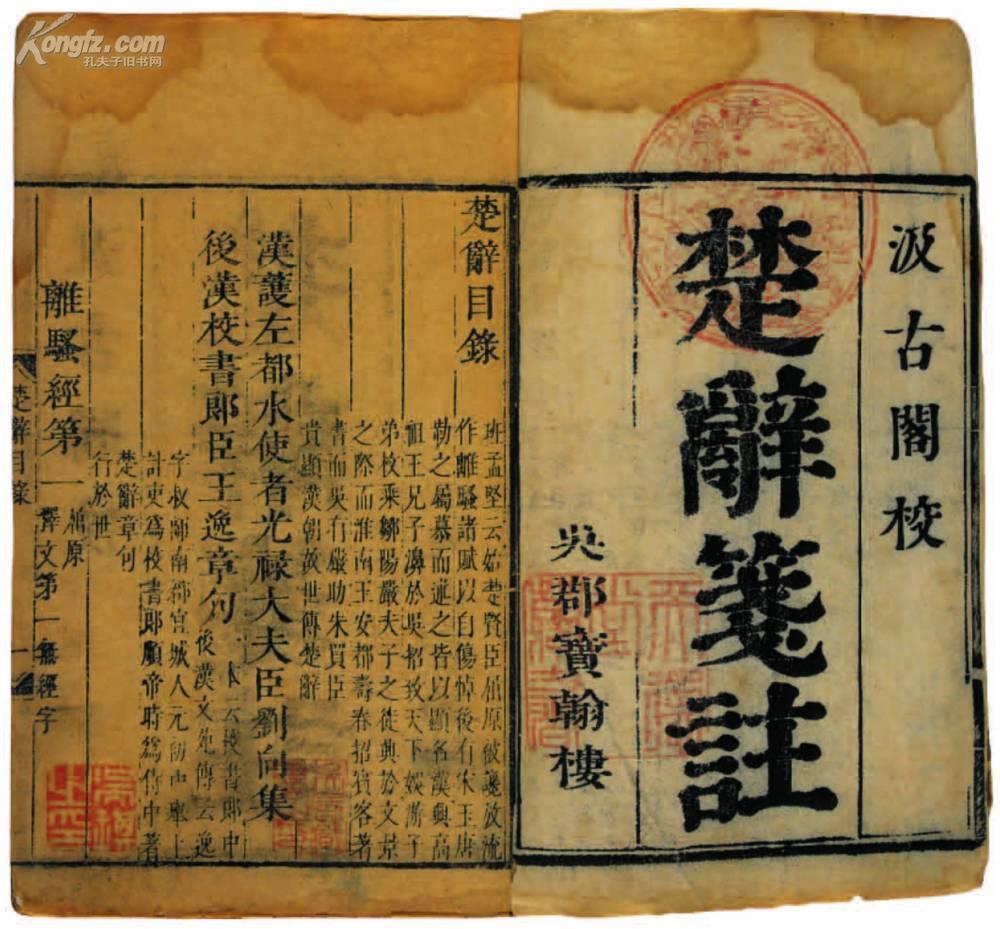 Kongfz.com
孔夫子旧书网
汲古閣校
楚辭箋註
吳郡寶翰樓
楚辭目錄
班孟堅云始楚賢臣屈原被讒放流
作離騷諸賦以自傷悼後有宋玉唐
勒之屬慕而述之皆以顯名漢興高
祖王兄子濞於吳招致天下娛游子
弟枚乘鄒陽嚴夫子之徒興於文景
之際而淮南王安都壽春招賓客著
書而吳有嚴助朱買臣
貴顯漢朝故世傳楚辭
漢護左都水使者光祿大夫臣劉向集
後漢校書郎臣王逸章句
後漢文苑傳云逸
字叔師南郡宜城人元初中舉上
計吏為校書郎順帝時為侍中著
楚辭章句
行於世
離騷經第一
屈原
釋文第一無經字
楚辭目錄
一